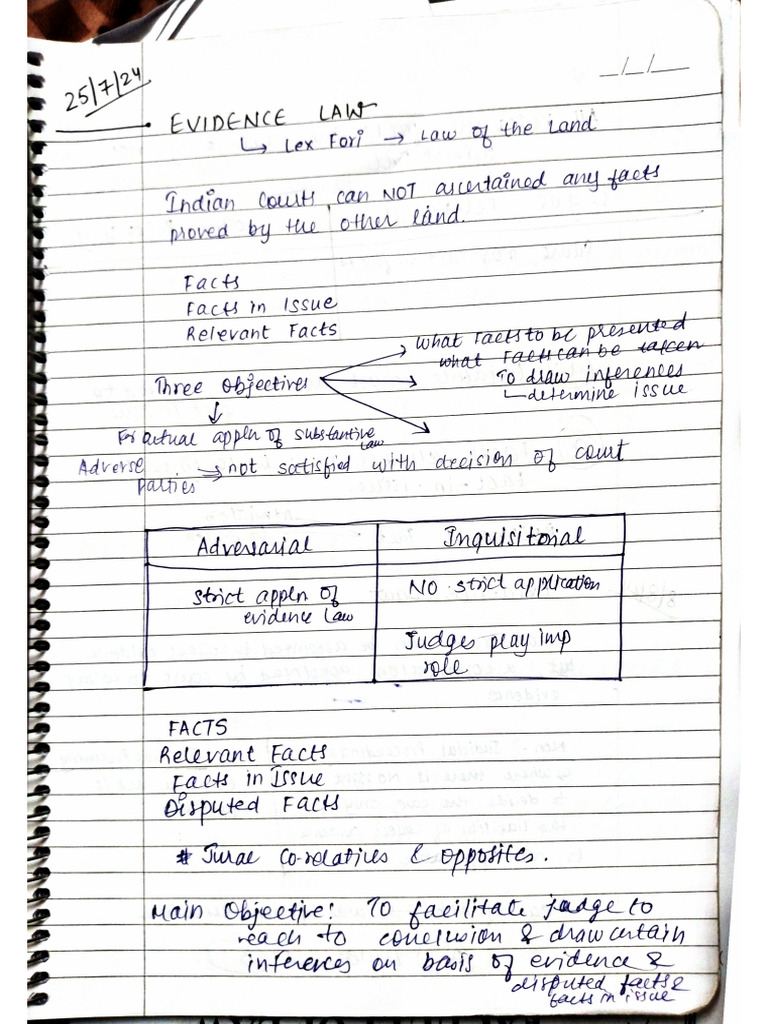 25/7/24
_/_/_
• EVIDENCE LAW
↳ Lex Fori → Law of the Land
Indian Courts can NOT ascertained any facts
proved by the other land.
Facts
Facts in Issue
Relevant Facts
What Facts to be presented
what Facts can be taken
Three Objectives
To draw inferences
determine issue
For actual appln of substantive
Law
Adverse
Parties → not satisfied with decision of court
Adversarial
Inquisitorial
Strict appln of
evidence law
NO strict application
Judges play imp
role
FACTS
Relevant Facts
Facts in Issue
Disputed Facts
# Jural Co-relatives & opposites.
Main Objective: To facilitate judge to
reach to conclusion & draw certain
inferences on basis of evidence &
disputed facts &
facts in issue